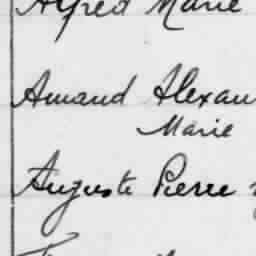 Alfred Marie
Amand Alexan
Marie
Auguste Pierre